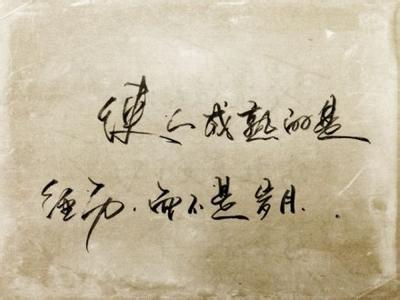 使人成熟的是
经历.而不是岁月..